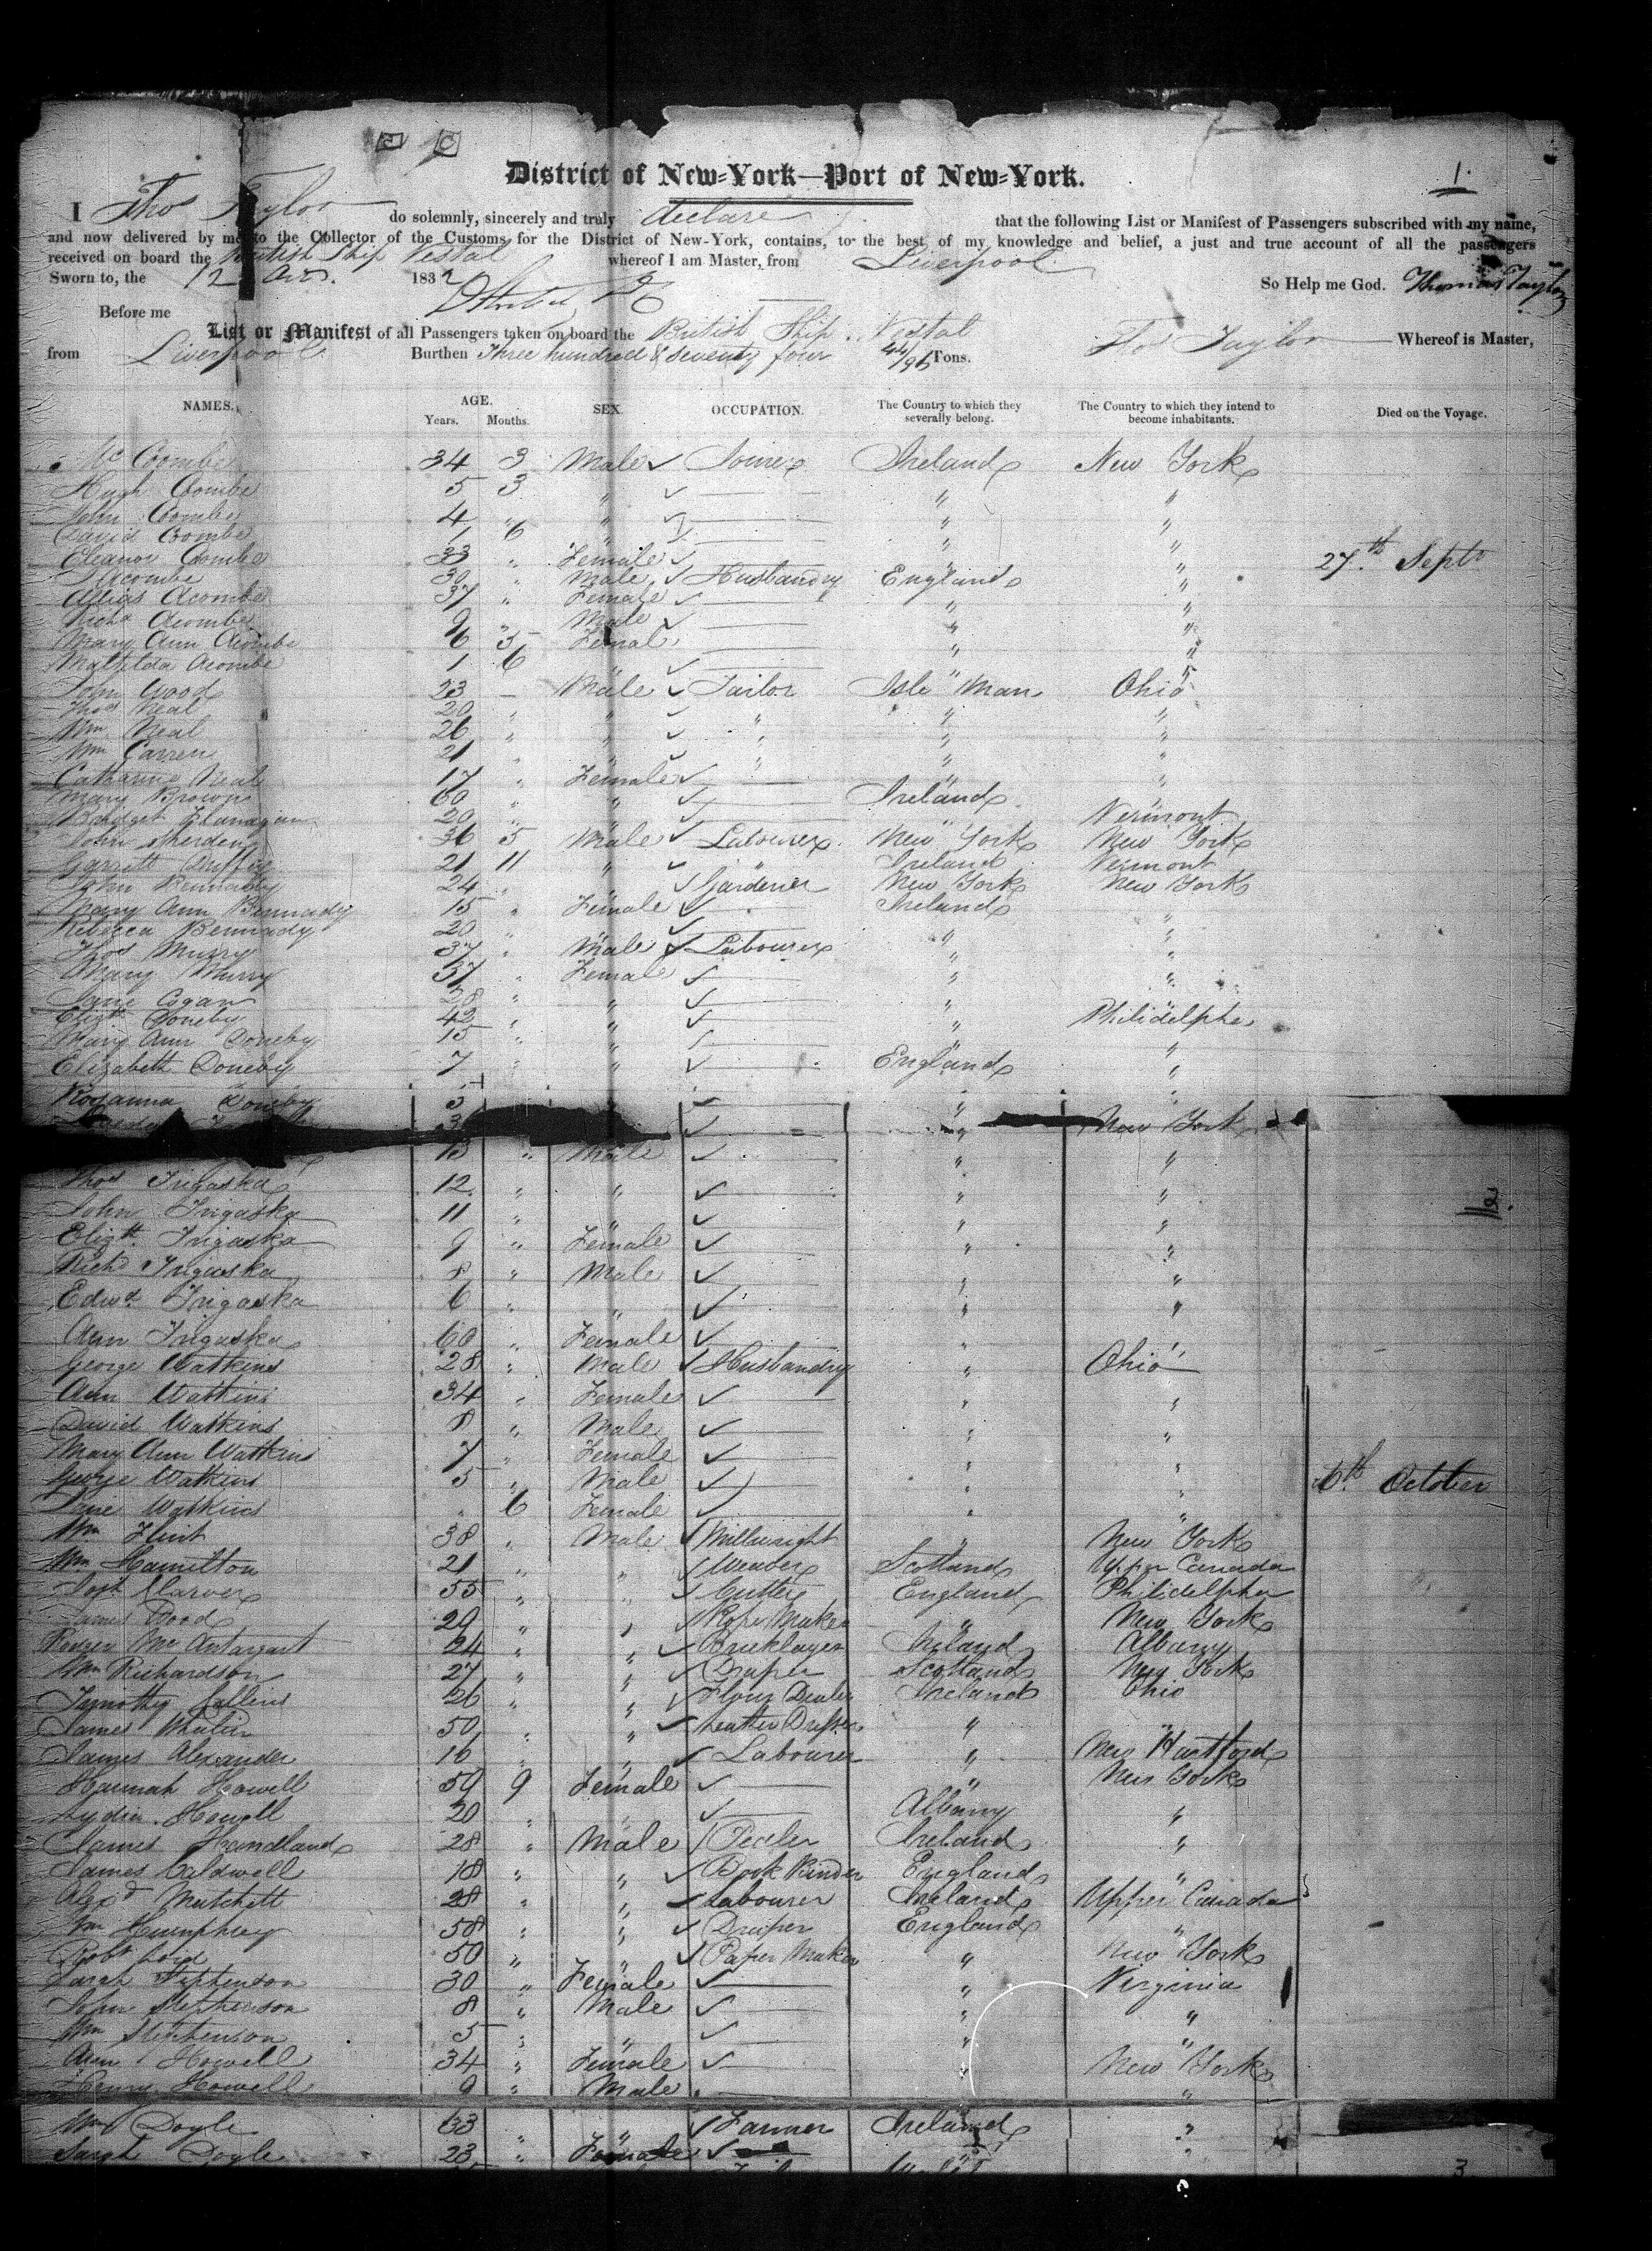 1.
District of New-York—Port of New-York.
I Thos Taylor do solemnly, sincerely and truly declare that the following List or Manifest of Passengers subscribed with my name,
and now delivered by me to the Collector of the Customs for the District of New-York, contains, to the best of my knowledge and belief, a just and true account of all the passengers
received on board the British Ship Vestal whereof I am Master, from Liverpool
Sworn to, the 12 1832 So Help me God. Thomas Taylor
Before me
List or Manifest of all Passengers taken on board the British Ship Vestal Thos Taylor Whereof is Master,
from Liverpool Burthen Three hundred & seventy four 44/95 Tons.
NAMES. AGE. Years. Months. SEX. OCCUPATION. The Country to which they severally belong. The Country to which they intend to become inhabitants. Died on the Voyage.
Mc Coombe 34 3 Male Joiner Ireland New York
Hugh Coombe 5 3 " " "
John Coombe 4 " " " "
David Coombe 1 6 " " "
Eleanor Coombe 33 " Female " " 27th Septr
Acombe 30 " Male Husbandry England "
Acombe 37 " Female " "
Richd Acombe 9 " Male " "
Mary Ann Acombe 6 5 Female " "
Matilda Acombe 1 6 " " "
John Wood 23 - Male Tailor Isle Man Ohio
Thos Neal 20 " " " " "
Wm Neal 26 " " " " "
Wm Carren 21 " " " " "
Catharine Neal 17 " Female " "
Mary Brown 60 " " Ireland
Bridget Flanagan 20 " " " Vermont
John Sherden 36 5 Male Labourer New York New York
Garrett 21 11 " " Ireland Vermont
John Bennady 24 " " Gardener New York New York
Mary Ann Bennady 15 " Female Ireland "
Rebecca Bennady 20 " " " "
Thos Murry 37 " Male Labourer " "
Mary Murry 37 " Female " "
Jane Cogan 28 " " " "
Elizth Doneby 42 " " " Philidelpha
Mary Ann Doneby 15 " " " "
Elizabeth Doneby 7 " " England "
Rosanna Doneby 5 " "
3 " New York
13 " Male " "
Thos Trigaska 12 " " " "
John Trigaska 11 " " " "
Elizth Trigaska 9 " Female " "
Richd Trigaska 8 " Male " "
2.
Edwd Trigaska 6 " " " "
Ann Trigaska 60 " Female " "
George Watkins 28 " Male Husbandry " Ohio
Ann Watkins 34 " Female " "
David Watkins 8 " Male " "
Mary Ann Watkins 7 " Female " "
George Watkins 5 " Male " " 6th October
Jane Watkins " 6 Female " "
Wm Flint 38 " Male Millwright " New York
Wm Hamilton 21 " " Weaver Scotland Upper Canada
Josh Carver 55 " " Cutter England Philidelpha
James Wood 29 " " Rope Maker " New York
Rodger Mc 24 " " Bricklayer Ireland Albany
Wm Richardson 27 " " Draper Scotland New York
Tymothy Collins 26 " " Flour Dealer Ireland Ohio
James Whelin 50 " " Leather Dresser " "
James Alexander 16 " " Labourer " New Hartford
Hannah Howell 59 9 Female " New York
Lydia Howell 20 " " Albany "
James Handland 28 " Male Ireland "
James Caldwell 18 " " Book Binder England "
Alexd Mutchett 28 " " Labourer Ireland Upper Canada
Wm Humphrey 58 " " Draper England "
Robt Lord 50 " " Paper Maker " New York
Sarah Stephenson 30 " Female " Virginia
John Stephenson 8 " Male " "
Wm Stephenson 5 " " " "
Ann Howell 34 " Female " New York
Henry Howell 9 " Male "
Wm Doyle 33 " " Farmer Ireland "
Sarah Doyle 23 " Female " "
3